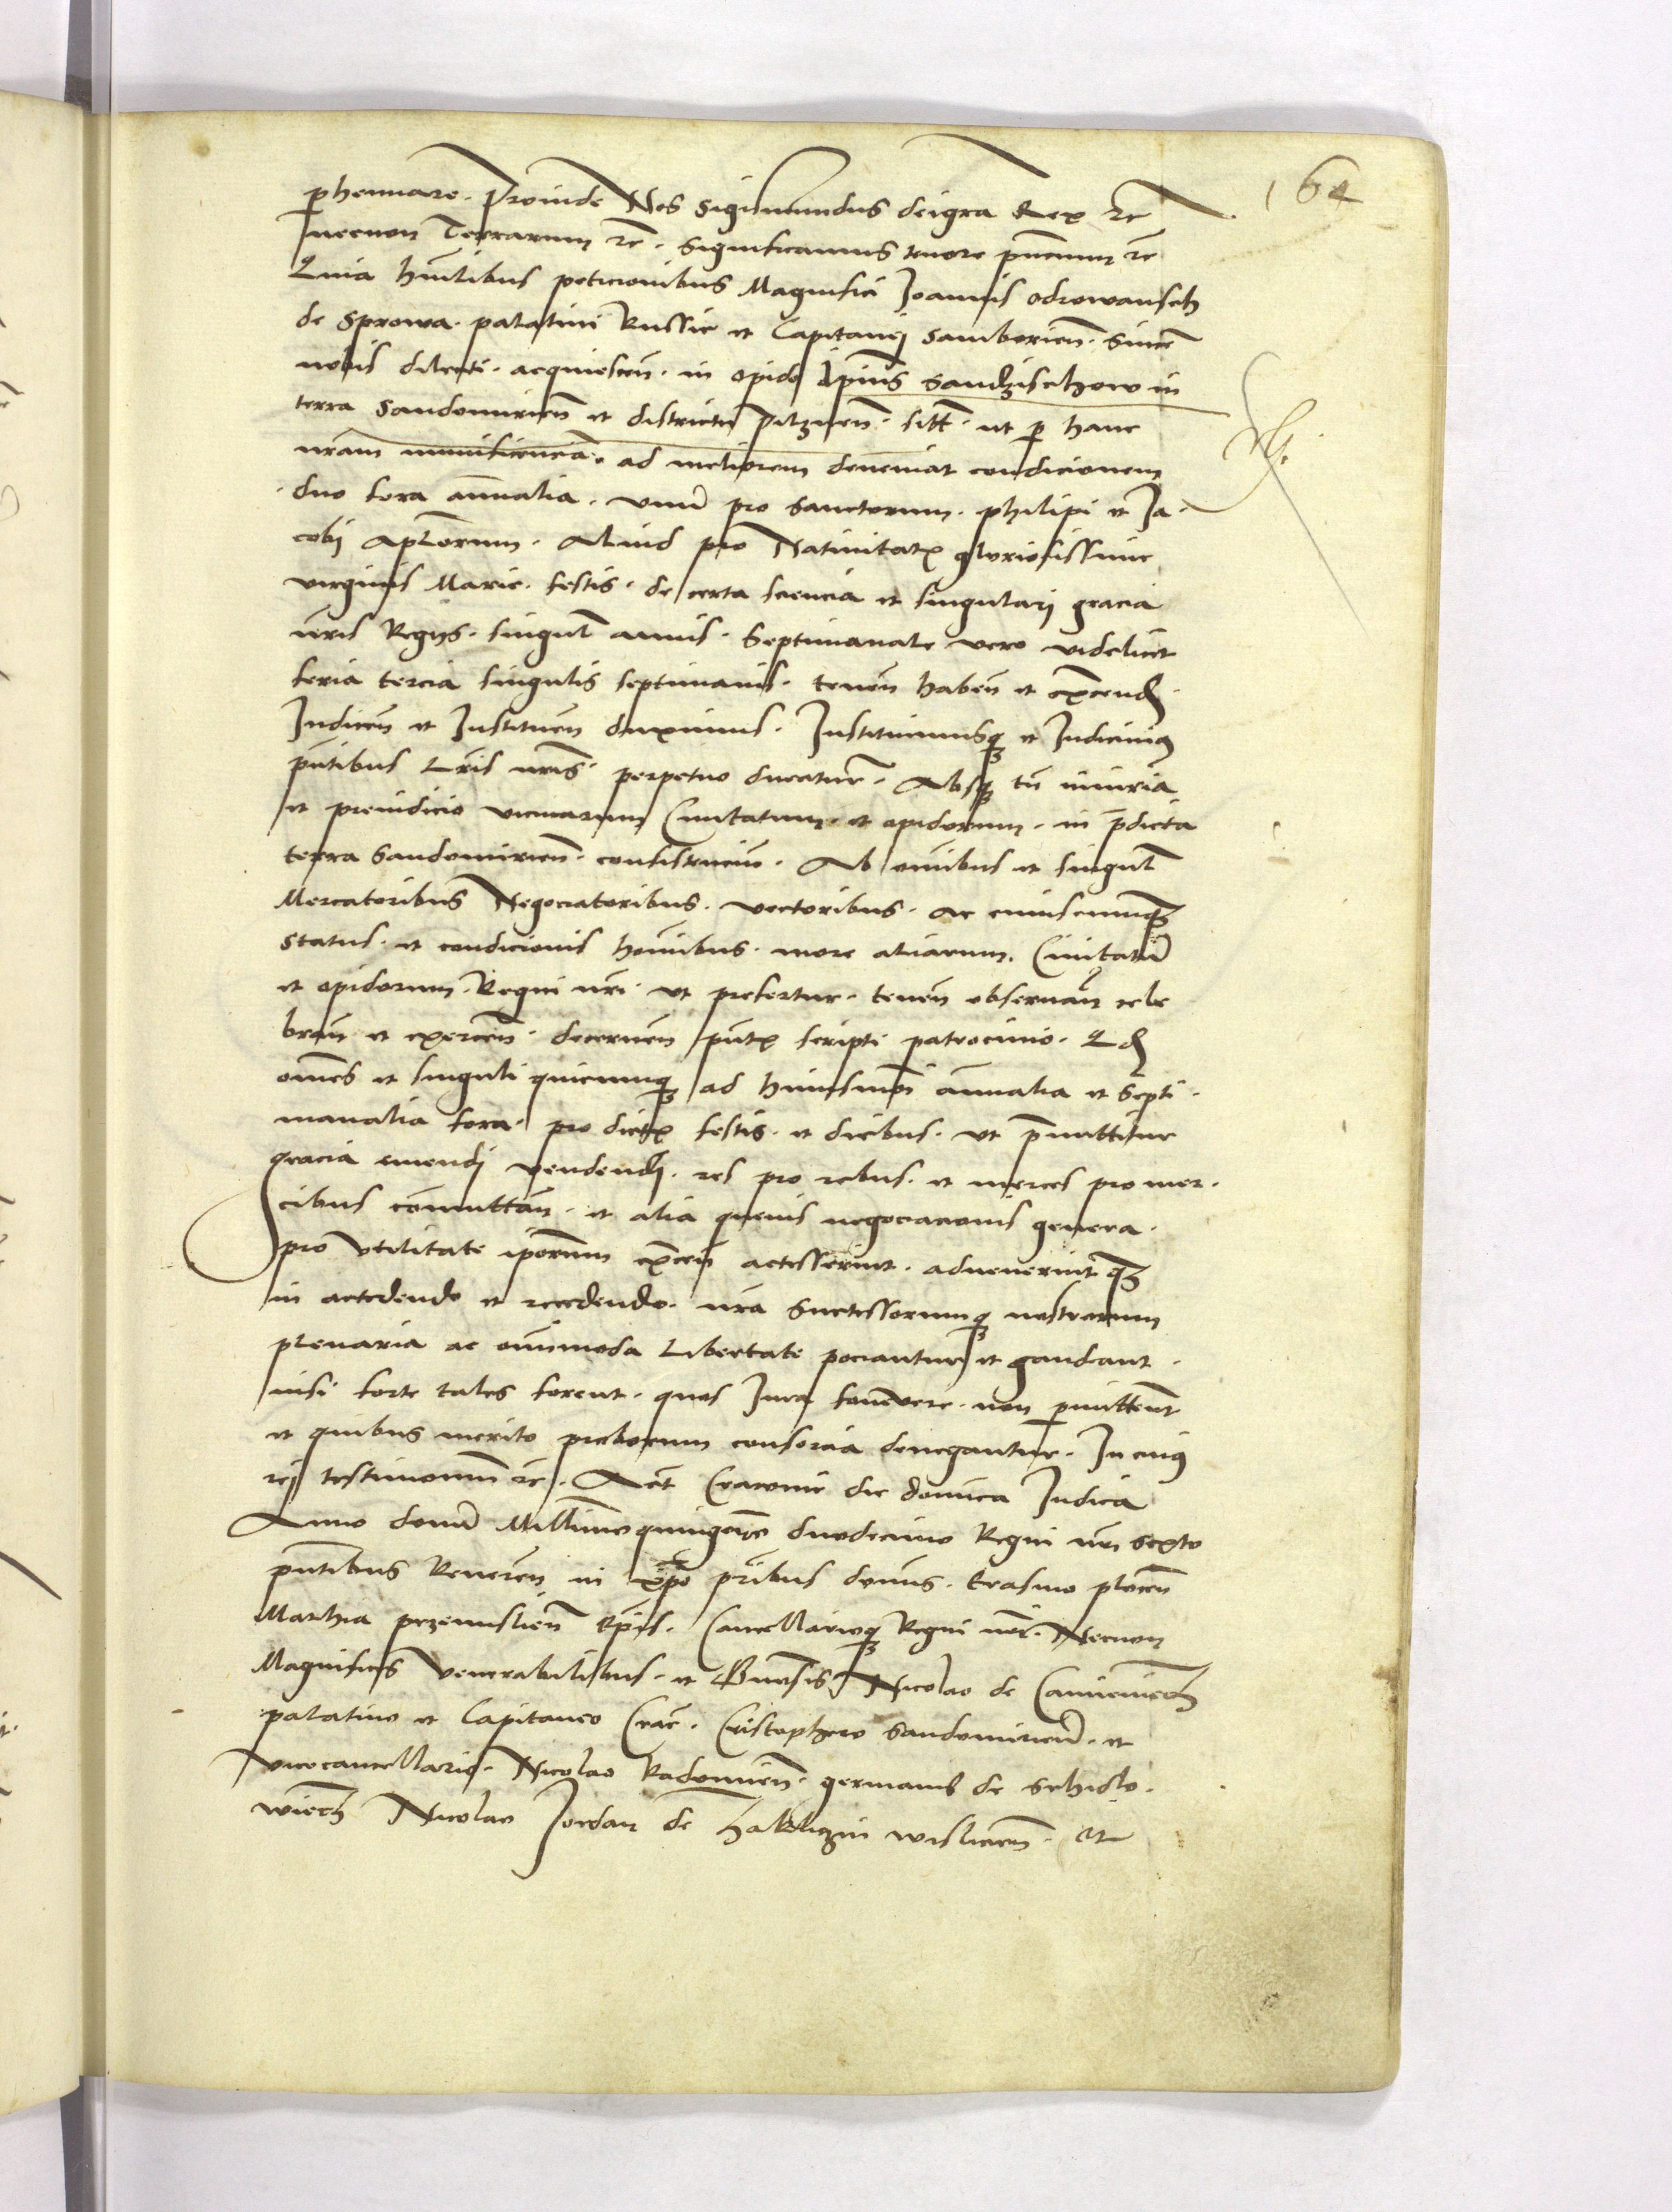 164
phennare. Proinde Nos Sigismundus dei gra Rex etc
necnon Terrarum etc. Significamus tenore pntium etc
Quia humilibus peticionibus Magnifici Joannis Odrowansch
de Sprowa. palatini Russie et Capitanej Samborien. Sincere
nobis dilecti. acquiescen. in opido ipsius Sandzischow in
terra Sandomirien et districtu pilznen. sitt. ut per hanc
nram munificencia. ad meliorem deveniat condicionem
duo fora annualia. unum pro sanctorum. philipi et Ja-
cobj Aplorum. Aliud pro Nativitatis gloriosissime
virginis Marie. festis. de certa sciencia et singularj gracia
nris Regijs. singul annis. Septimanale vero videlicet
feria tercia singulis septimanis. tenen haben et exercend
Indicen et Instituen duximus. Instituimusque et Indicimus
pntibus Lris nris. perpetuo duraturis. Absque tn iniuria
et preiudicio vicinarum Civitatum. et opidorum. in predicta
terra Sandomirien. consistencium. Ab omnibus et singul
Mercatoribus Negociatoribus. vectoribus. ac cuiuscumque
status. et condicionis hominibus. more aliarum. Civitatum
et opidorum. Regni nri. ut prefertur. tenen observan cele
bran et exercen. decernen pntis scripti patrocinio. Qd
omnes et singuli quicumque ad huiusmodi annualia et septi-
manalia fora. pro dictis festis. et diebus. ut premittitur
gracia emendj vendendj. res pro rebus. et merces pro mer-
cibus committan. et alia quevis negociacionis genera.
pro utilitate ipsorum exercen accesserint. advenerintque
in accedendo et recedendo. nra Successorumque nostrorum
plenaria ac omnimoda Libertate pociantur et gaudeant.
nisi forte tales forent. quos Jura fovere. non permittent
et quibus merito proborum consorcia denegantur. In cuius
rej testimonium etc. Act Cracovie die dominica Judica
Anno domini Millesimo quingentesimo duodecimo Regni nri sexto
pntibus Reveren in xpo pribus dominis. Erasmo plocen
Mathia przemislien Epis. Cancellarioque Regni nri. Necnon
Magnificis Venerabilibus. et Generosis Nicolao de Camieniecz
palatino et Capitaneo Crac. Cristophero Sandomirien. et
vicecancellario. Nicolao Radomien. germanis de Schidlo-
wiecz Nicolao Jordan de Zakliczin wislicien. etc